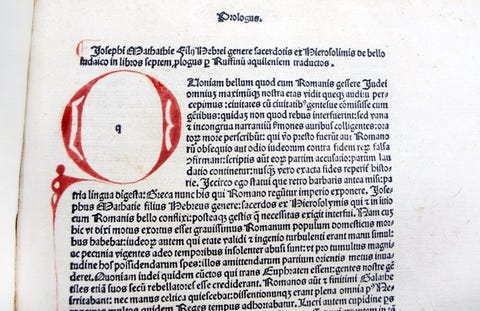 Prologus.
Josephi Mathathie filij Hebrei genere sacerdotis ex Hierosolimis de bello
iudaico in libros septem, plogus p Ruffinū aquileniem traductos.
q
Uoniam bellum quod cum Romanis gessere Judei
omniuz maximūqȝ nostra etas vidit quecqȝ auditu per
cepimus: ciuitates cū ciuitatibꝰ gentesue comisisse cum
gētibus: quidaȝ non quod rebus interfuerint: sed vana
et incongrua narrantiū sermones auribus colligentes: ora
toꝝ more perscribūt: qui vo presto fuerūt aut Romano
rū obsequio aut odio iudeorum contra fidem reꝝ falsa
ꝯfirmant: scriptis aūt eoꝝ partim accusatio: partim lau
datio continetur: nusqȝ vero exacta fides reperit histo-
rie. Jccirco ego statui que retro barbaris antea misi: pa
tria lingua digesta: Greca nunc his qui Romano regūtur imperio exponere. Jose-
phus Mathatie filius Hebreus genere: sacerdos ex Hierosolymis qui z initio
cum Romanis bello conflixi: posteaqȝ gestis ꝗ necessitas exigit interfui. Nam cuȝ
hic vt dixi motus exortus esset grauissimus Romanum populum domesticus mor
bus habebat: iudeoꝝ autem qui etate validi z ingenio turbulenti erant manu simul:
ac pecunia vigentes adeo temporibus insolenter abusi sunt: vt pro tumultus magni
tudine hos possidendarum spes: illos amittendarum partium orientis metus inuade
deret. Quoniam iudei quidem cūctos qui trans Euphraten essent: gentes nostre ge
tiles etiā suos secū rebellatores esse crediderant. Romanos aūt z finitimi Galathe
irritabant: nec manus celtica quiescebat: dissentionumqȝ erant plena omnia p Ne
quidem Reges tempus adhortabatur. Lucri autem cupidine